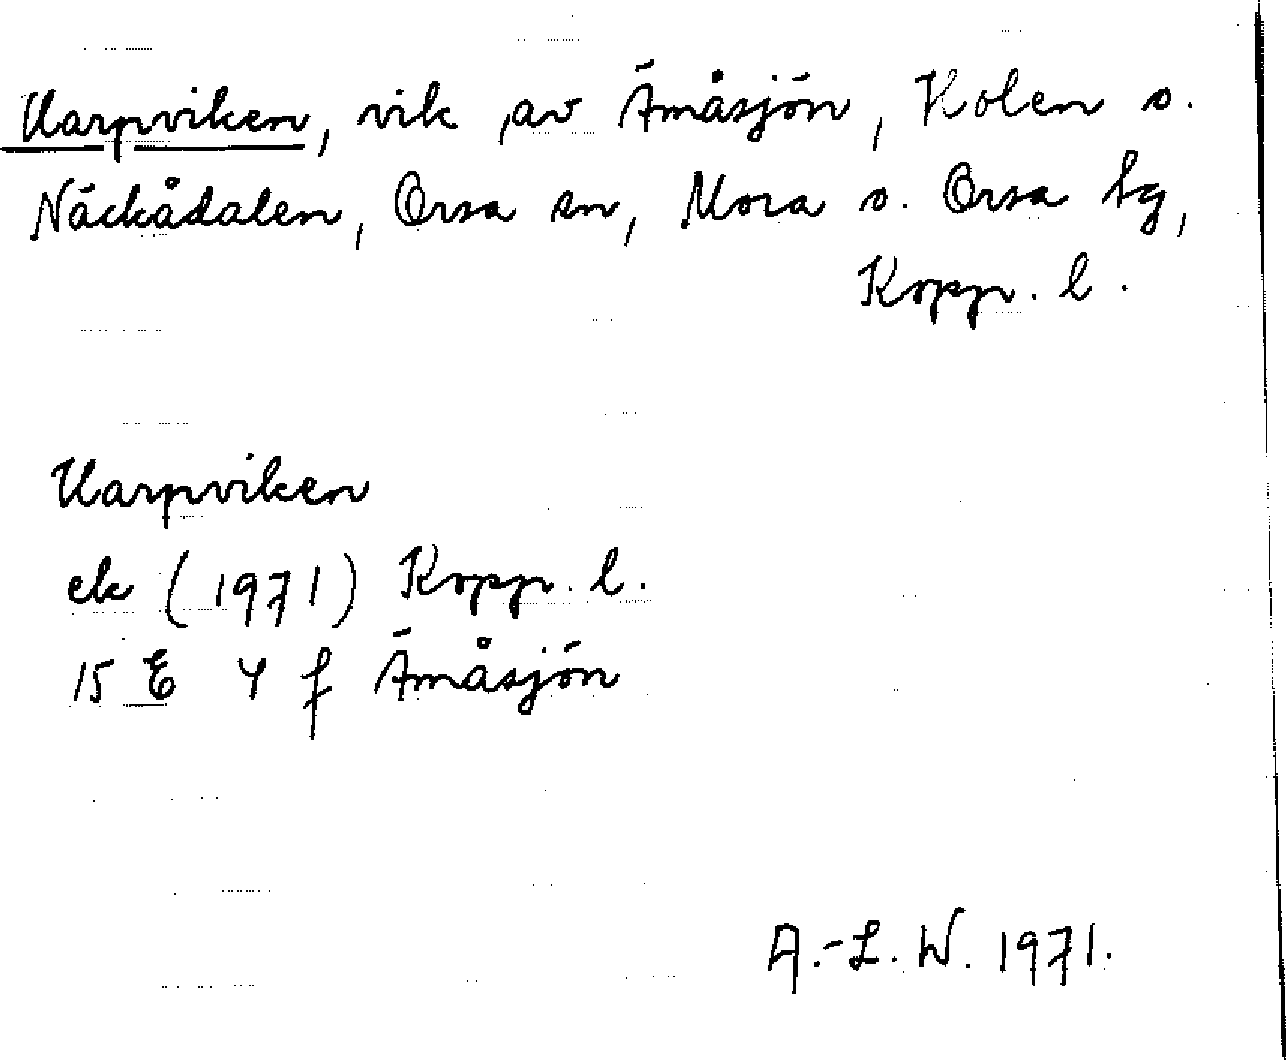 Varpviken, vik av Ämåsjön, Kolen o.
Näckådalen, Orsa sn, Mora o. Orsa tg,
Kopp. l.
Varpviken
ek (1971) Kopp. l.
15 E 4 f Ämåsjön
A.-L. W. 1971.